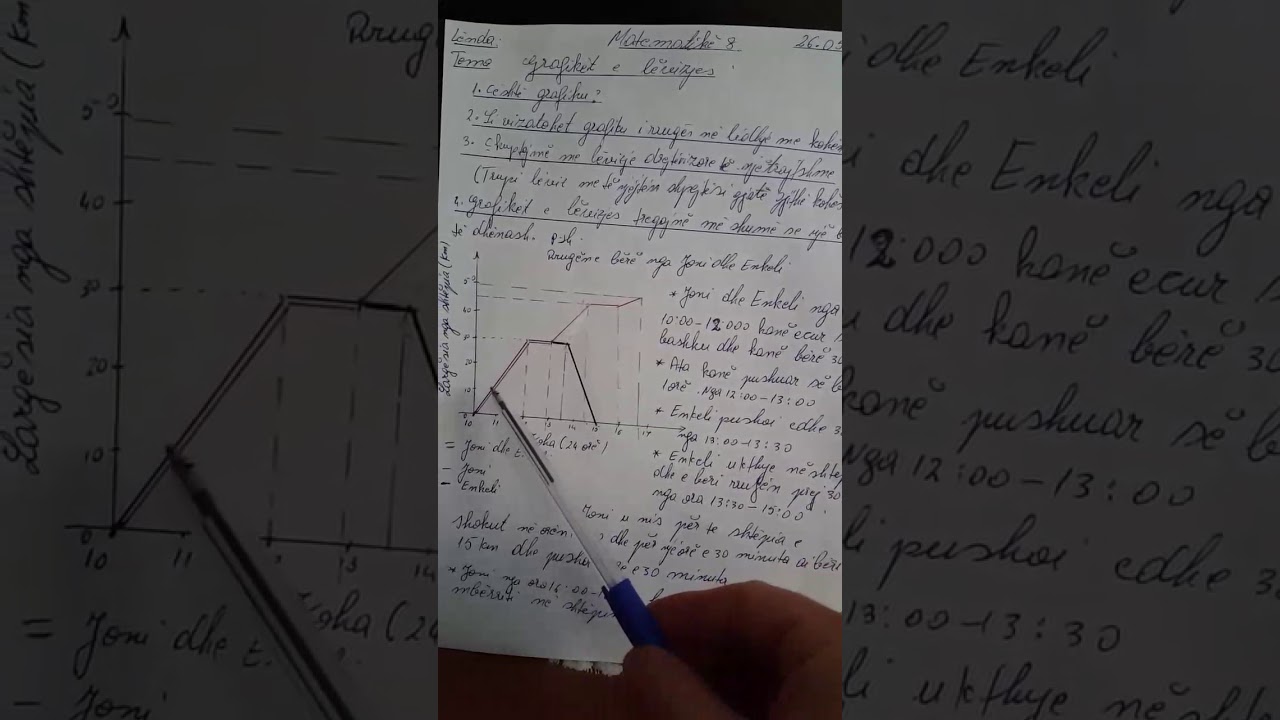 Lënda: Matematikë 8 26.05
Tema Grafikët e lëvizjes
1. Ç'është grafiku?
2. Si vizatohet grafiku i rrugës në lidhje me kohën
3. me lëvizje drejtvizore të njëtrajtshme
(Trupi lëviz me të njëjtën shpejtësi gjatë gjithë kohës
4. Grafikët e lëvizjes tregojnë më shumë se një
të dhënash. psh.
Rrugëne bërë nga Joni dhe Enkeli
Largësia nga shtëpia (km)
50
40
30
20
10
0
10 11 13 14 15 16 17
Koha (24 orë)
= Joni dhe E
– Joni
– Enkeli
* Joni dhe Enkeli nga
10:00–12:000 kanë ecur
bashku dhe kanë bërë 30
* Ata kanë pushuar së
1 orë. Nga 12:00–13:00
* Enkeli pushoi edhe 3
nga 13:00–13:30
* Enkeli u kthye në shtëp
dhe e bëri rrugën prej 30
nga ora 13:30–15:00.
Joni u nis për te shtëpia e
shokut në orën dhe për një orë e 30 minuta ai bëri
15 km dhe pusho e 30 minuta
* Joni nga ora
mbërriti në shtëpin